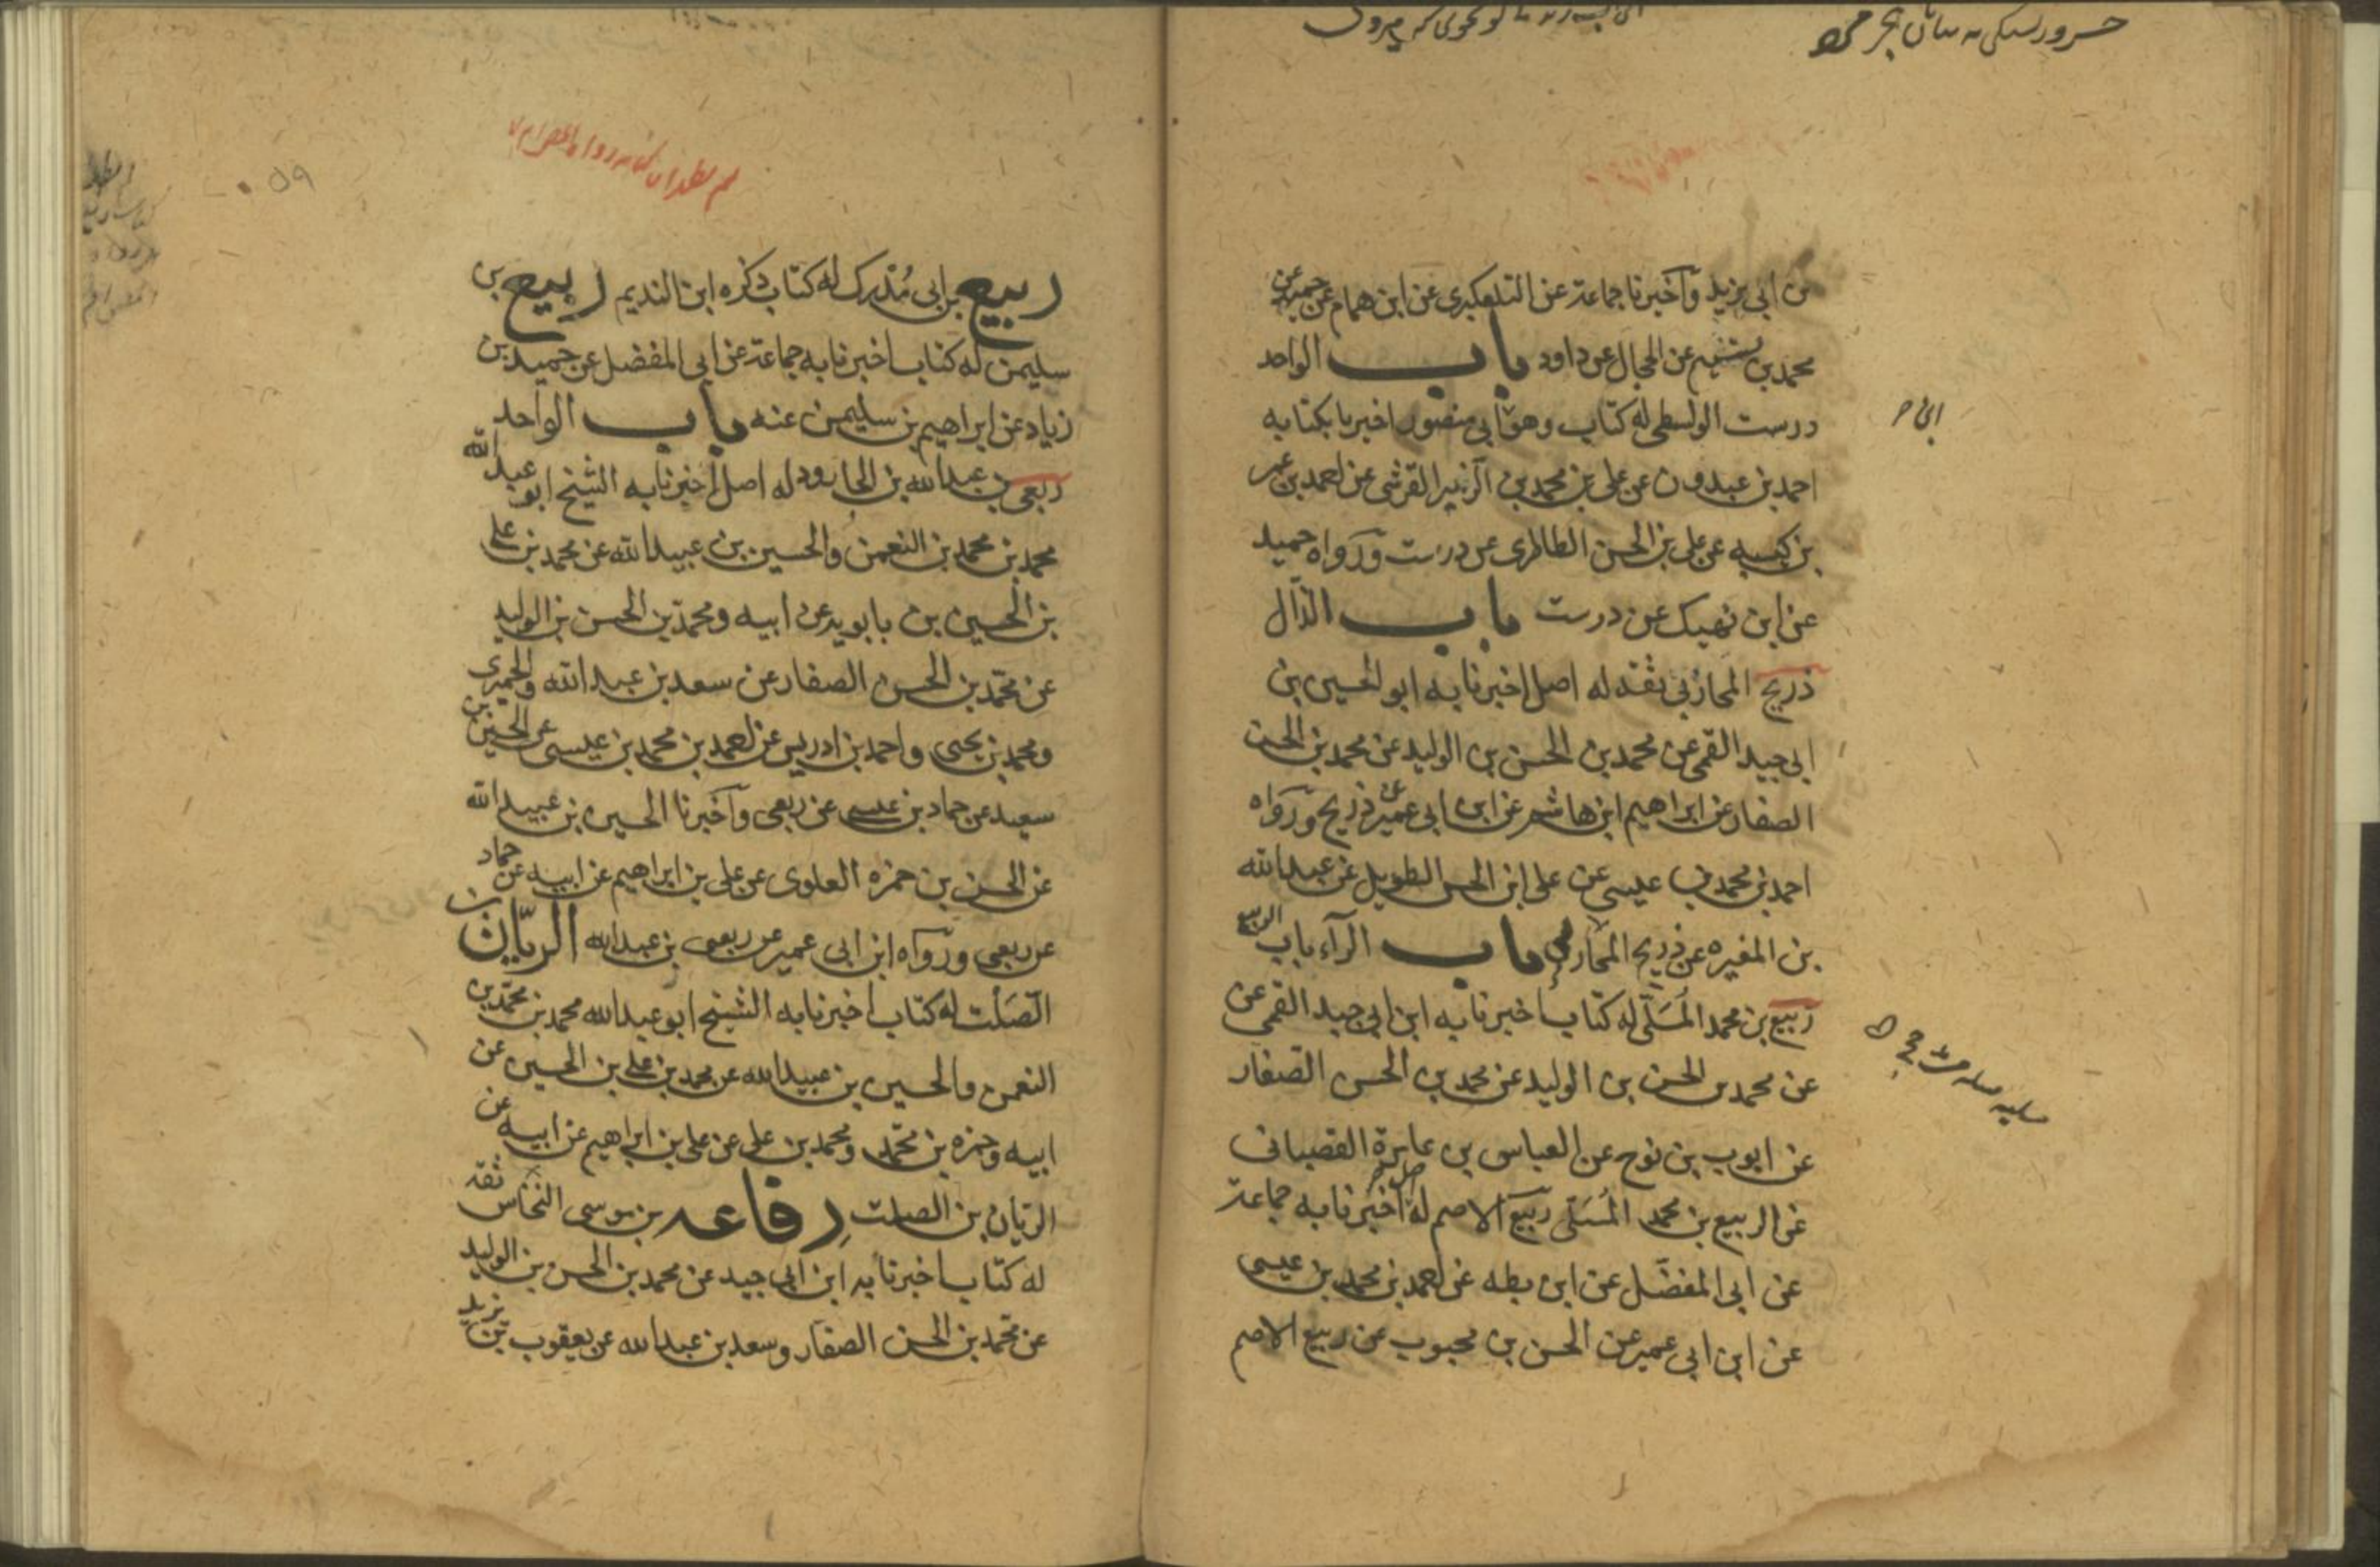 بن ابى يزيد وآخبرنا جماعة عن التلعكبرى عن ابن همام عن حميد عن
محمد بن تسنيم عن الحجال عن داود باب الواحد
درست الواسطى له كتاب وهو ابى منصور اخبرنا بكتابه
احمد بن عبدون عن على بن محمد بن الزبير القرشى عن احمد بن عمر
بن كيسبه عن على بن الحسن الطاطرى عن درست ورواه حميد
عن ابن نهيك عن درست باب الذال
ذريح المحاربى ثقه له اصل اخبرنا به ابو الحسين بن
ابى جيد القمى عن محمد بن الحسن بن الوليد عن محمد بن الحسن
الصفار عن ابراهيم ابن هاشم عن ابن ابى عمير عن ذريح ورواه
احمد بن محمد بن عيسى عن على ابن الحسن الطويل عن عبد الله
بن المغيره عن ذريح المحاربى باب الرآء باب الربيع
ربيع بن محمد المسلى له كتاب اخبرنا به ابن ابى جيد القمى عن
عن محمد بن الحسن بن الوليد عن محمد بن الحسن الصفار
عن ايوب بن نوح عن العباس بن عامرة القصبانى
عن الربيع بن محمد المسلى ربيع الاصم له اصل اخبرنا به جماعة
عن ابى المفضل عن ابن بطه عن احمد بن محمد بن عيسى
عن ابن ابى عمير عن الحسن بن محبوب عن ربيع الاصم
ربيع بن ابى مدرك له كتاب ذكره ابن النديم ربيع بن
سليمن له كتاب اخبرنا به جماعة عن ابى المفضل عن حميد بن
زياد عن ابراهيم بن سليمن عنه باب الواحد
ربعى بن عبد الله بن الجارود له اصل اخبرنا به الشيخ ابو عبد الله
محمد بن محمد بن النعمن والحسين بن عبيد الله عن محمد بن على
بن الحسين بن بابويه عن ابيه ومحمد بن الحسن بن الوليد
عن محمد بن الحسن الصفار عن سعد بن عبد الله والحميرى
ومحمد بن يحيى واحمد بن ادريس عن احمد بن محمد بن عيسى عن الحسين بن
سعيد عن حماد بن عيسى عن ربعى وآخبرنا الحسين بن عبيد الله
عن الحسن بن حمزه العلوى عن على بن ابراهيم عن ابيه عن حماد
عن ربعى ورواه ابن ابى عمير عن ربعى بن عبد الله الريان بن
الصلت له كتاب اخبرنا به الشيخ ابو عبد الله محمد بن محمد بن
النعمن والحسين بن عبيد الله عن محمد بن على بن الحسين عن
ابيه وحمزه بن محمد ومحمد بن على عن على بن ابراهيم عن ابيه عن
الريان بن الصلت رفاعه بن موسى النخاس ثقه
له كتاب اخبرنا به ابن ابى جيد عن محمد بن الحسن بن الوليد
عن محمد بن الحسن الصفار وسعد بن عبد الله عن يعقوب بن يزيد